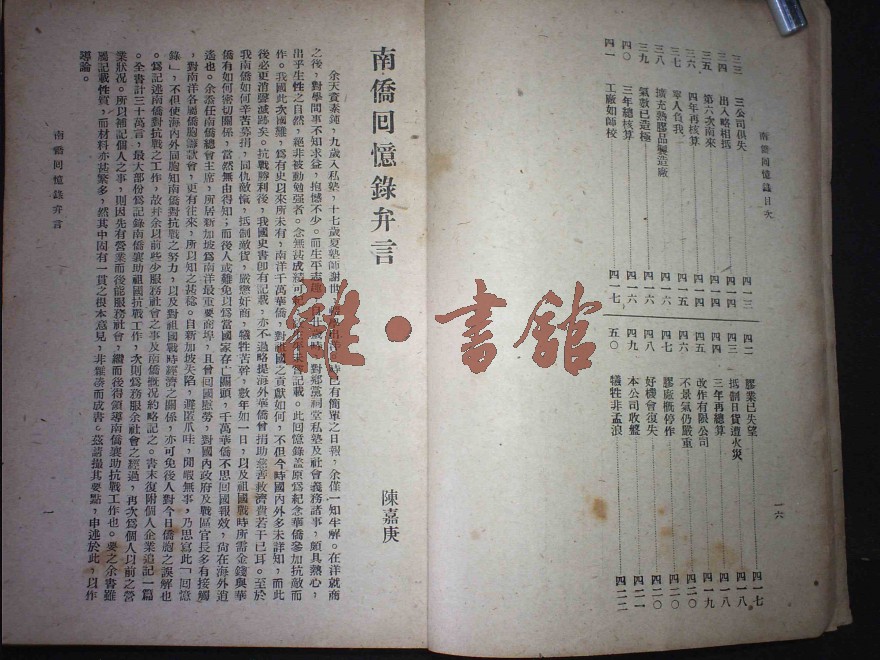 南僑回憶錄目次
一六
三三 三公司俱失……四一三
三四 出入略相抵……四一四
三五 第六次南來……四一四
三六 四年再核算……四一四
三七 寧人負我……四一五
三八 擴充熟膠品製造廠……四一六
三九 氣數已造極……四一六
四〇 三年總核算……四一六
四一 工廠如師校……四一七
四二 膠業已失望……四一七
四三 抵制日貨遭火災……四一八
四四 三年再總算……四一八
四五 改作有限公司……四一九
四六 不景氣仍嚴重……四二〇
四七 膠廠概停作……四二〇
四八 好機會復失……四二〇
四九 本公司收盤……四二一
五〇 犧牲非孟浪……四二二
南僑回憶錄弁言
陳嘉庚
余天資素鈍，九歲入私塾，十七歲夏塾師謝世，出洋，時已有簡單之日報，余僅一知半解。在洋就商
之後，對學問事不知求益，抱憾不少。而生平志趣，自廿歲時，對鄉黨祠堂私塾及社會義務諸事，頗具熱心，
出乎生性之自然，絕非被動勉強者。念無甚成績可紀，故未嘗記載。此回憶錄蓋原爲紀念華僑參加抗敵而
作。我國此次國難，爲有史以來所未有，南洋千萬華僑，對祖國之貢獻如何，不但今時國內外多未詳知，而此
後必更消聲滅跡矣。抗戰勝利後，我國史書卽有記載，亦不過略提海外華僑曾捐助慈善救濟費若干已耳。至於
我南僑如何辛苦募捐，同仇敵愾，抵制敵貨，嚴懲奸商，犧牲苦幹，數年如一日，以及祖國戰時所需金錢與華
僑有如何密切關係，當然無由得知；而後人或難免以爲當國家存亡關頭，千萬華僑不思回國報效，尚在海外逍
遙也。余忝任南僑總會主席，所居新加坡爲南洋最重要商埠，且曾回國慰勞，對國內政府及戰區官長多有接觸
，對南洋各屬僑胞籌款會，更有往來，所以知之甚稔。自新加坡失陷，避匿爪哇，閒暇無事，乃思寫此「回憶
錄」，不但使海內外同胞知南僑對抗戰之努力，以及對祖國戰時經濟之關係，亦可免後人對今日僑胞之誤解也
。爲記述南僑對抗戰之工作，故幷余以前些少服務社會之事及南僑槪況約略記之。書末復附個人企業追記一篇
。全書計三十萬言，最大部份爲記錄南僑襄助祖國抗戰工作，次則爲務服余社會之經過，再次爲個人以前之營
業狀況。所以補記個人之事，則因先有營業而後能服務社會，繼而後得領導南僑襄助抗戰工作也。要之余書雖
屬記載性質，而材料亦甚繁多，然其中固有一貫之根本意見，非雜湊而成書。茲請撮其要點，申述於此，以作
導論。
南僑回憶錄弁言
一
雜·書館